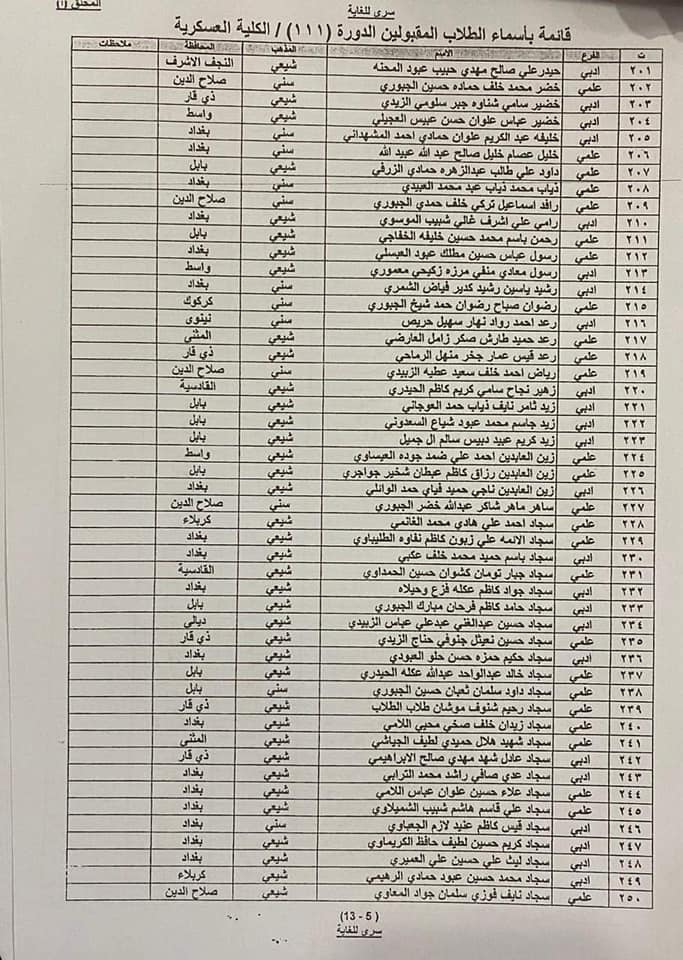 سري للغاية
الملحق (أ)
قائمة بأسماء الطلاب المقبولين الدورة (١١١) / الكلية العسكرية
ت الفرع الاسم المذهب المحافظة ملاحظات
٢٠١ ادبي حيدر علي صالح مهدي حبيب عبود المحنه شيعي النجف الاشرف
٢٠٢ علمي خضر محمد خلف حماده حسين الجبوري سني صلاح الدين
٢٠٣ ادبي خضير سامي شناوه جبر سلومي الزيدي شيعي ذي قار
٢٠٤ ادبي خضير عباس علوان حسن عبيس العجيلي شيعي واسط
٢٠٥ ادبي خليفه عبد الكريم علوان حمادي احمد المشهداني سني بغداد
٢٠٦ علمي خليل عصام خليل صالح عبد الله عبيد الله سني بغداد
٢٠٧ علمي داود علي طالب عبدالزهره حمادي الزرفي شيعي بابل
٢٠٨ علمي ذياب محمد ذياب عبد محمد العبيدي سني بغداد
٢٠٩ علمي رافد اسماعيل تركي خلف حمدي الجبوري سني صلاح الدين
٢١٠ ادبي رامي علي اشرف غالي شبيب الموسوي شيعي بغداد
٢١١ علمي رحمن باسم محمد حسين خليفه الخفاجي شيعي بابل
٢١٢ علمي رسول عباس حسين مطلك عبود العبسلي شيعي بغداد
٢١٣ ادبي رسول معادي منفي مرزه زكيحي معموري شيعي واسط
٢١٤ ادبي رشيد ياسين رشيد كدير فياض الشمري سني بغداد
٢١٥ علمي رضوان صباح رضوان حمد شيخ الجبوري سني كركوك
٢١٦ ادبي رعد احمد رواد نهار سهيل حريص سني نينوى
٢١٧ علمي رعد حميد طارش صكر زامل العارضي شيعي المثنى
٢١٨ علمي رعد قيس عمار جخر منهل الرماحي شيعي ذي قار
٢١٩ علمي رياض احمد خلف سعيد عطيه الزبيدي سني صلاح الدين
٢٢٠ ادبي زهير نجاح سامي كريم كاظم الحيدري شيعي القادسية
٢٢١ ادبي زيد ثامر نايف ذياب حمد العوجاني شيعي بابل
٢٢٢ ادبي زيد جاسم محمد عبود شياع السعدوني شيعي بابل
٢٢٣ ادبي زيد كريم عبيد دبيس سالم ال جميل شيعي بابل
٢٢٤ علمي زين العابدين احمد علي ضمد جوده العيساوي شيعي واسط
٢٢٥ علمي زين العابدين رزاق كاظم عبطان شخير جواجري شيعي بابل
٢٢٦ ادبي زين العابدين ناجي حميد فياي حمد الوائلي شيعي بغداد
٢٢٧ علمي ساهر ماهر شاكر عبدالله خضر الجبوري سني صلاح الدين
٢٢٨ علمي سجاد احمد علي هادي محمد الغانمي شيعي كربلاء
٢٢٩ علمي سجاد الائمه علي زبون كاظم نفاوه الطليباوي شيعي بغداد
٢٣٠ ادبي سجاد باسم حميد محمد خلف عكبي شيعي بغداد
٢٣١ علمي سجاد جبار تومان كشوان حسين الحمداوي شيعي القادسية
٢٣٢ ادبي سجاد جواد كاظم عكله فزع وحيلاه شيعي بغداد
٢٣٣ ادبي سجاد حامد كاظم فرحان مبارك الجبوري شيعي بابل
٢٣٤ ادبي سجاد حسين عبدالغني عبدعلي عباس الزبيدي شيعي ديالى
٢٣٥ علمي سجاد حسين نعيثل جنوفي حناج الزيدي شيعي ذي قار
٢٣٦ ادبي سجاد حكيم حمزه حسن حلو العبودي شيعي بغداد
٢٣٧ علمي سجاد خالد عبدالواحد عبدالله عكله الحيدري شيعي بابل
٢٣٨ علمي سجاد داود سلمان ثعبان حسين الجبوري سني بابل
٢٣٩ علمي سجاد رحيم شنوف موشان طلاب الطلاب شيعي ذي قار
٢٤٠ علمي سجاد زيدان خلف صخي محيي اللامي شيعي بغداد
٢٤١ علمي سجاد شهيد هلال حميدي لطيف الجياشي شيعي المثنى
٢٤٢ ادبي سجاد عادل شهد مهدي صالح الابراهيمي شيعي ذي قار
٢٤٣ ادبي سجاد عدي صافي راشد محمد الترابي شيعي بغداد
٢٤٤ علمي سجاد علاء حسين علوان عباس اللامي شيعي بغداد
٢٤٥ علمي سجاد علي قاسم هاشم شبيب الشميلاوي شيعي بغداد
٢٤٦ ادبي سجاد قيس كاظم عنيد لازم الجعباوي سني بغداد
٢٤٧ ادبي سجاد كريم حسين لطيف حافظ الكريماوي شيعي بغداد
٢٤٨ ادبي سجاد ليث علي حسين علي العميري شيعي بغداد
٢٤٩ ادبي سجاد محمد حسين عبود حمادي الرهيمي شيعي كربلاء
٢٥٠ علمي سجاد نايف فوزي سلمان جواد المعاوي شيعي صلاح الدين
(13 - 5)
سري للغاية